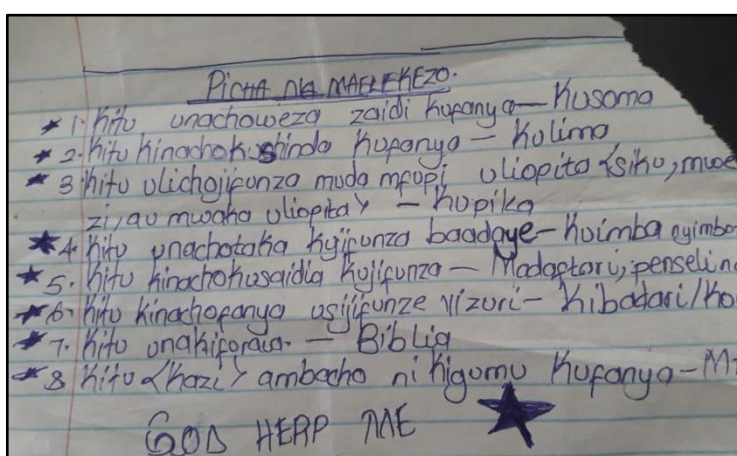 PICHA NA MAELEKEZO.
★ 1. Kitu unachoweza zaidi kufanya — Kusoma
★ 2. Kitu kinachokushinda kufanya — Kulima
★ 3 Kitu ulichojifunza muda mfupi uliopita <siku, mwe
zi, au mwaka uliopita> — Kupika
★ 4. Kitu unachotaka kujifunza baadaye — Kuimba nyimbo
★ 5. Kitu kinachokusaidia kujifunza — Madaftari, penseli na
★ 6. Kitu kinachofanya usijifunze vizuri — Kibatari/Ko
★ 7. Kitu unakifurahia. — Biblia
★ 8 Kitu <kazi> ambacho ni kigumu kufanya — M
GOD HERP ME ★